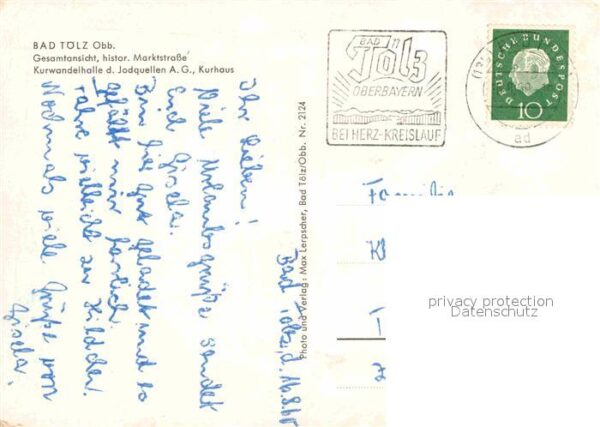 BAD TÖLZ Obb.
Gesamtansicht, histor. Marktstraße
Kurwandelhalle d. Jodquellen A.G., Kurhaus
BAD
Tölz
OBERBAYERN
BEI HERZ-KREISLAUF
DEUTSCHE BUNDESPOST
10
(13b)
ad
Bad Tölz, d. 16.8.60
Ihr Lieben!
Viele Urlaubsgrüße sendet
Euch Gisela.
Bin hier gut gelandet und es
gefällt mir herrlich.
fahre vielleicht zu
Nochmals viele Grüße von
Gisela.
Photo und Verlag: Max Lerpscher, Bad Tölz/Obb. Nr. 2124
Familie
K
privacy protection
Datenschutz